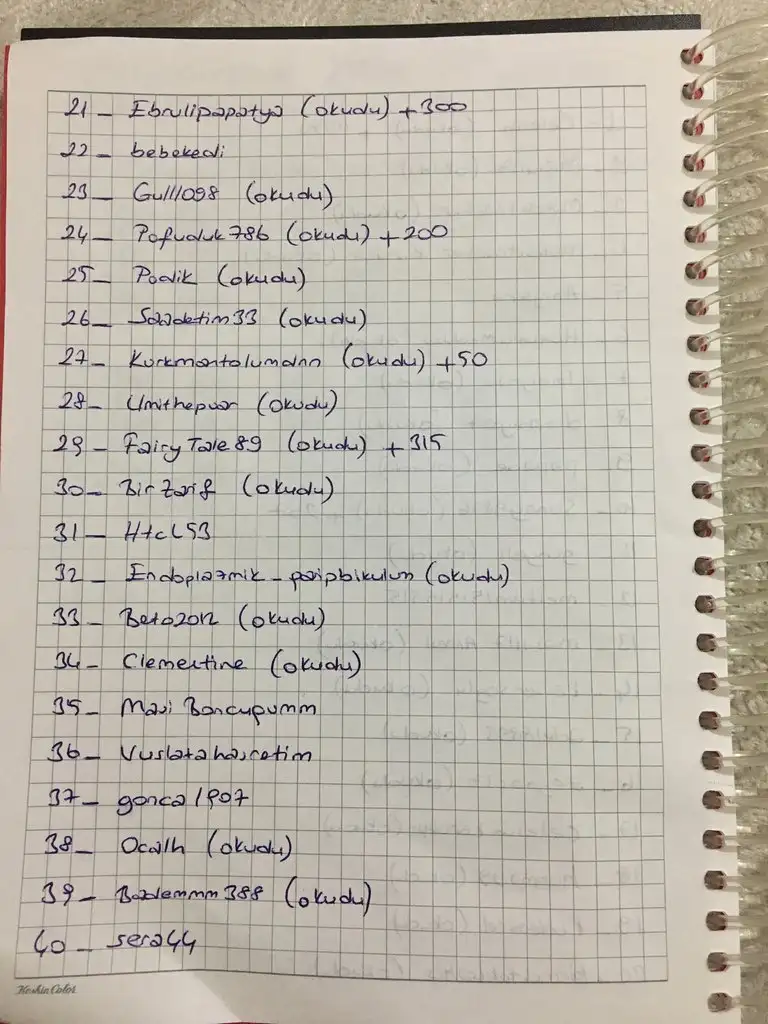 21- Ebrulipapatya (okudu) +300
22- bebekedi
23- Gulll098 (okudu)
24- Pofuduk786 (okudu) +200
25- Podik (okudu)
26- Saadetim33 (okudu)
27- Kurkmantolumdnn (okudu) +50
28- Umithepvar (okudu)
29- FairyTale89 (okudu) +315
30- BirZarif (okudu)
31- HtcL53
32- Endoplazmik-paripbikulum (okudu)
33- Beto2012 (okudu)
34- Clementine (okudu)
35- Mavi Boncupumm
36- Vuslatahasretim
37- gonca1907
38- Ocalh (okudu)
39- Bademmm388 (okudu)
40- sera44
Keskin Color